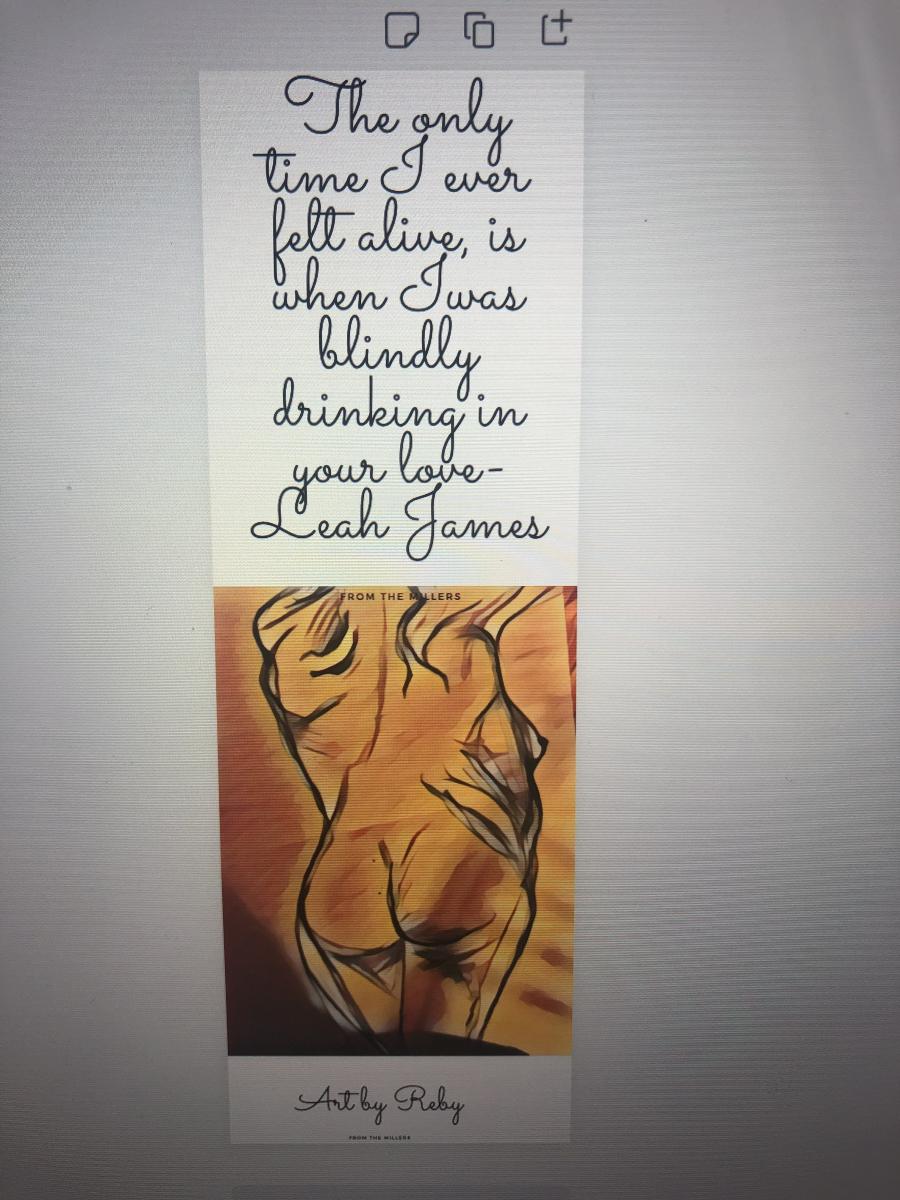 The only
time I ever
felt alive, is
when I was
blindly
drinking in
your love-
Leah James
FROM THE MILLERS
Art by Reby
FROM THE MILLERS